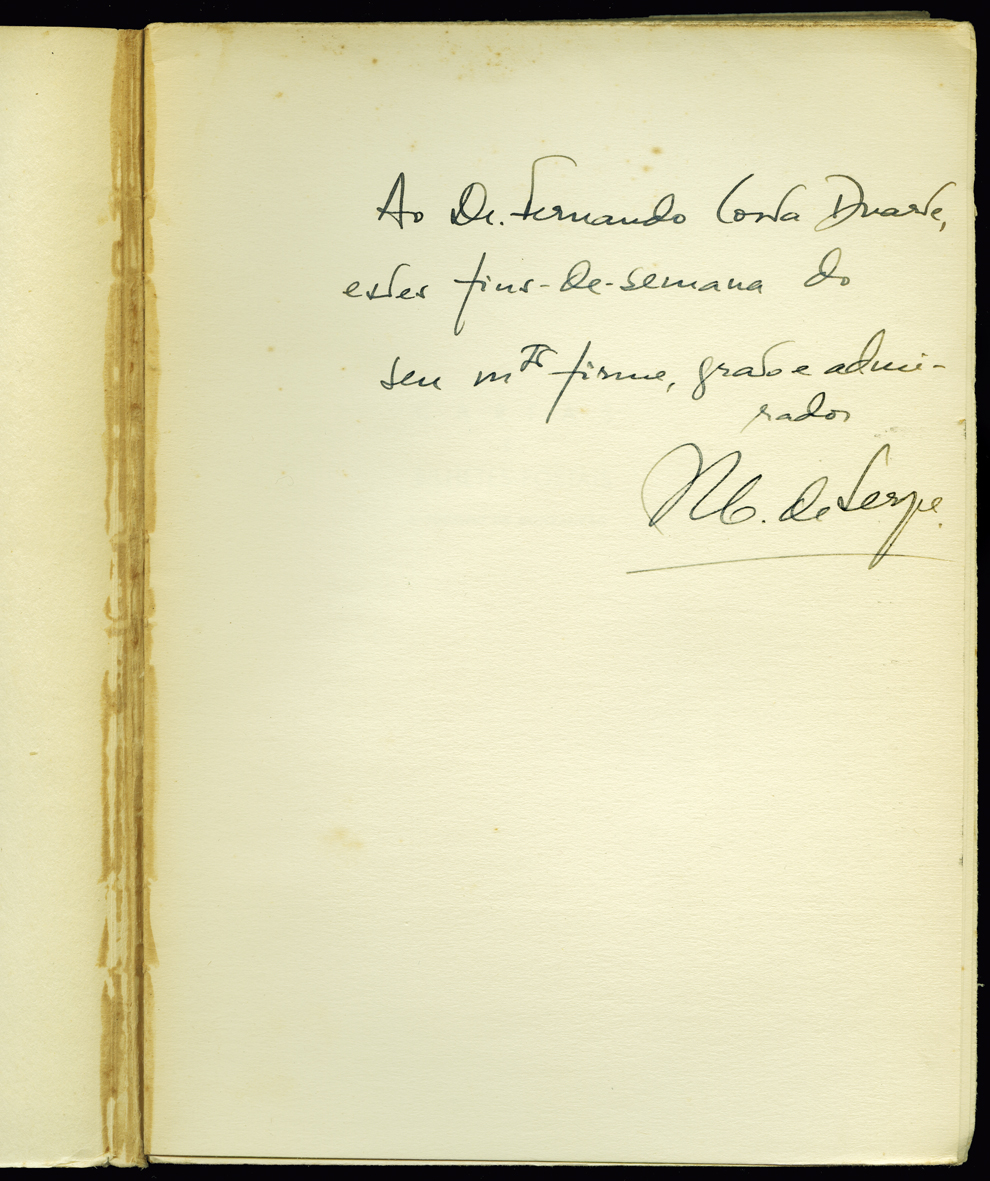 Ao Dr. Fernando Costa Duarte,
estes fins-de-semana do
seu mto firme, grato e admi-
rador
M. de Serpe.